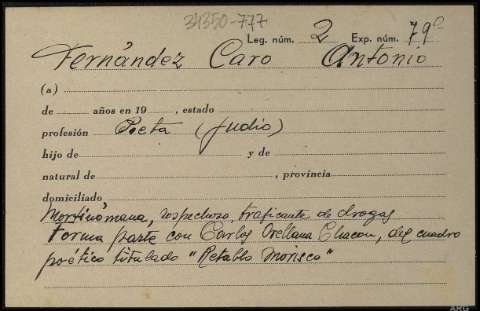 34350-777
Leg. núm. 2 Exp. núm. 79º
Fernández Caro Antonio
(a)
de años en 19 , estado
profesión Poeta (judio)
hijo de y de
natural de , provincia
domiciliado
Morfinómana, sospechoso, traficante de drogas
Forma parte con Carlos Orellana Chacon, del cuadro
poético titulado "Retablo Morisco"
ARG